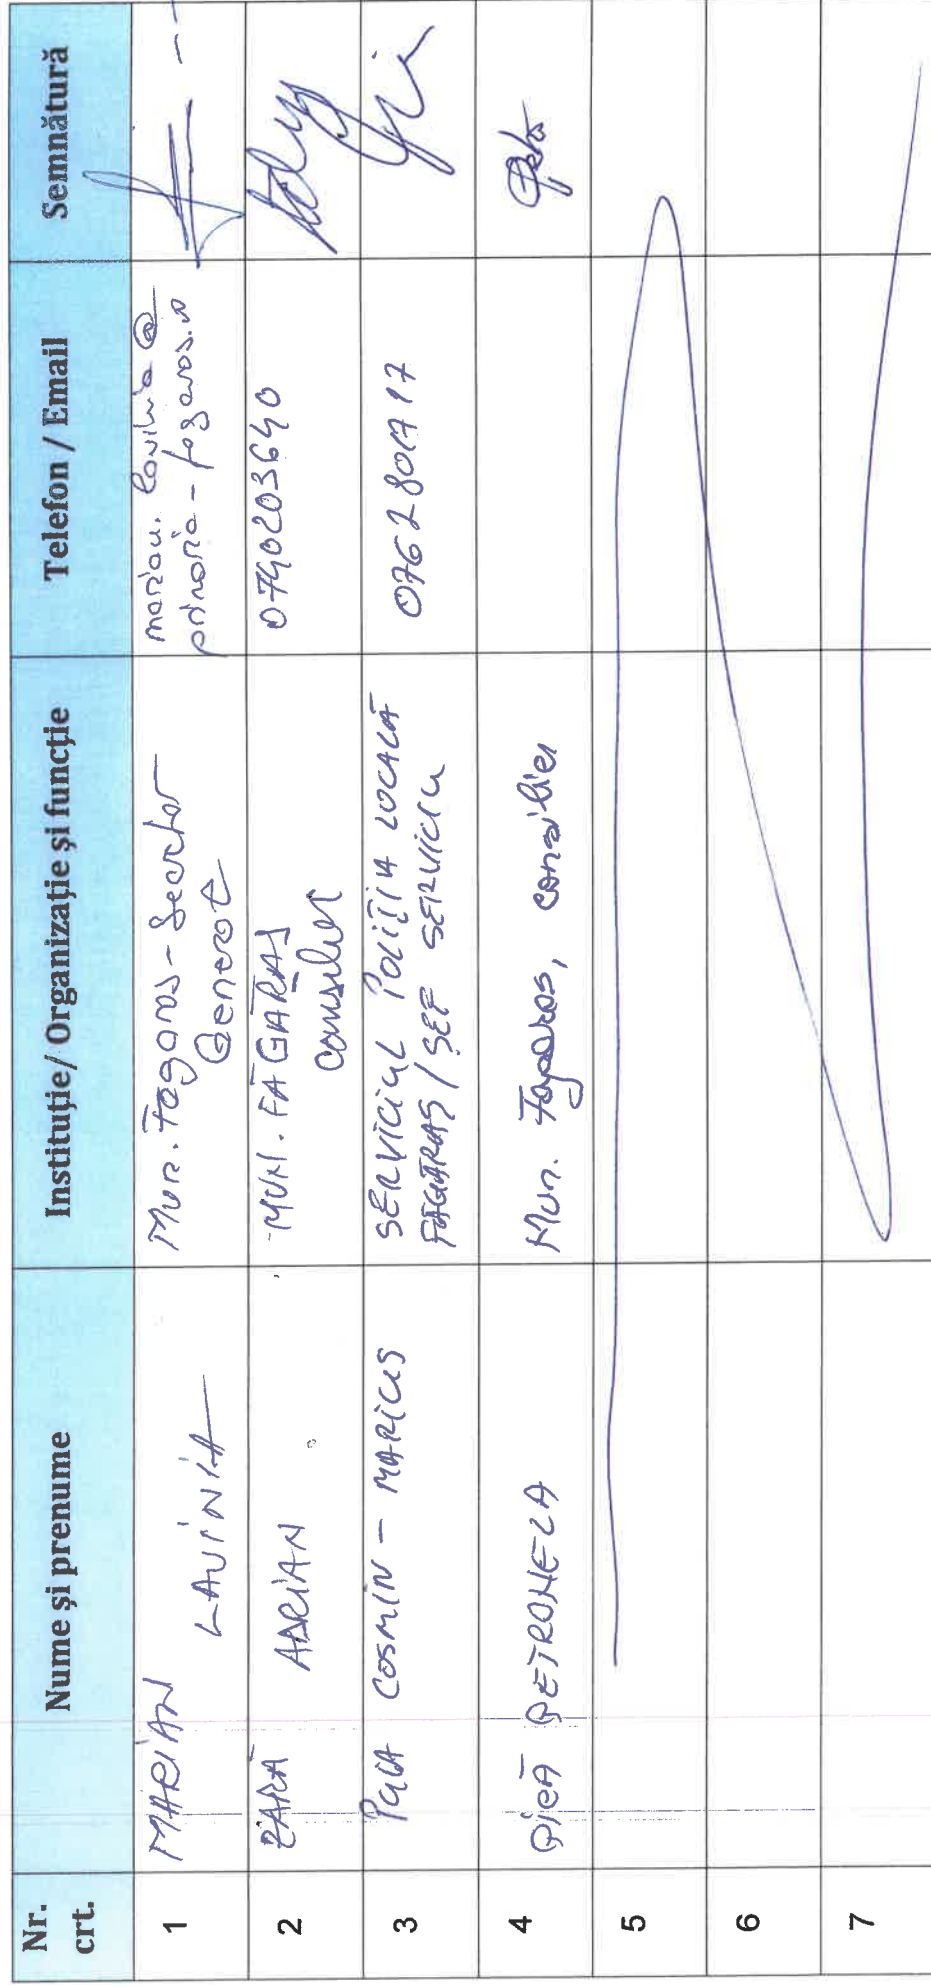 Nr. crt. Nume și prenume Instituție/ Organizație și funcție Telefon / Email Semnătură
1 MARIAN LAVINIA Mun. Făgăraș - Secretar General marian.lavinia@primaria-fagaras.ro
2 ADRIAN MUN. FĂGĂRAȘ consilier 0740203640
3 COSMIN - MARIUS SERVICIUL POLIȚIA LOCALĂ FĂGĂRAȘ / ȘEF SERVICIU
4 PETRONELA Mun. Făgăraș, consilier
5
6
7